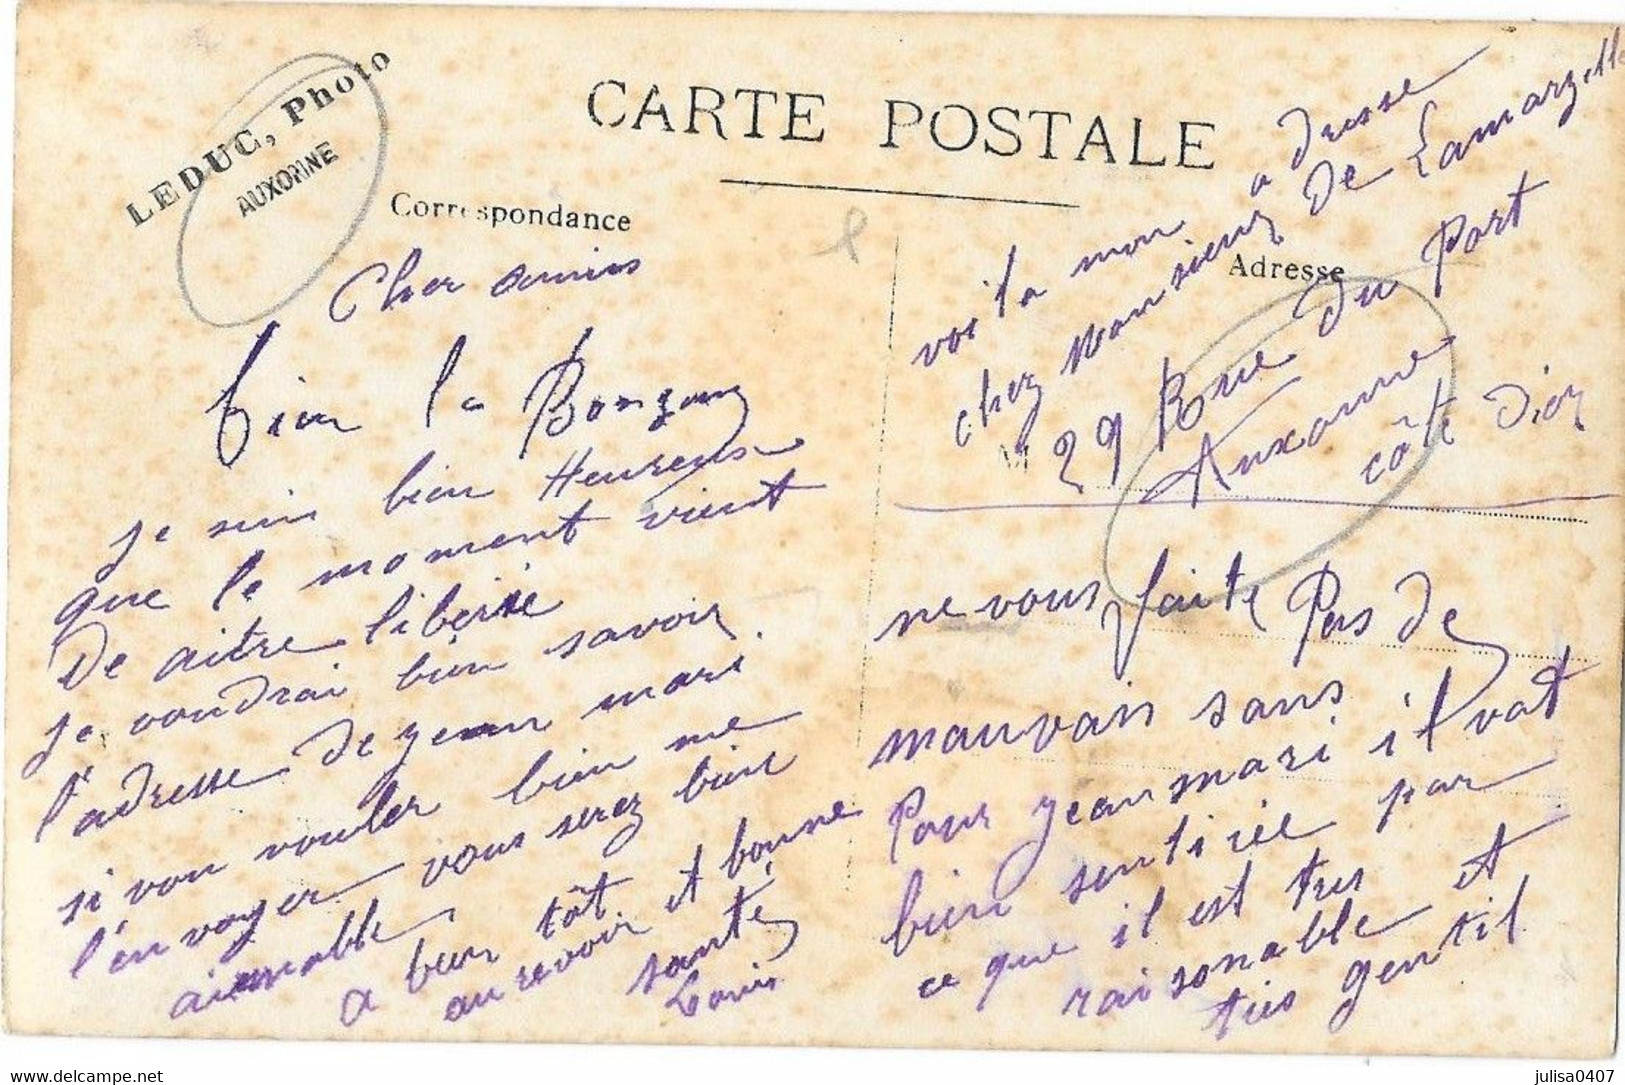 LEDUC, Photo
AUXONNE
CARTE POSTALE
Correspondance
Cher amis
bien le Bonjour
je suis bien Heureuse
que le moment vient
De aitre liberié
je voudrai bien savoir
l'adresse De jean mari.
si vou vouler bien me
l'en voyer vous serez bien
aimable
a bien tôt
au revoir et bonne
santé
Louis
Adresse
voi la mon adresse
chez Monsieur De Lamarzelle
M 29 Rue Du Port
Auxonne
côte Dior
ne vous faite Pas De
mauvais sans
Pour jean mari il vat
bien sentirée par
ce que il est tres
raisonable et
tres gentil
julisa0407